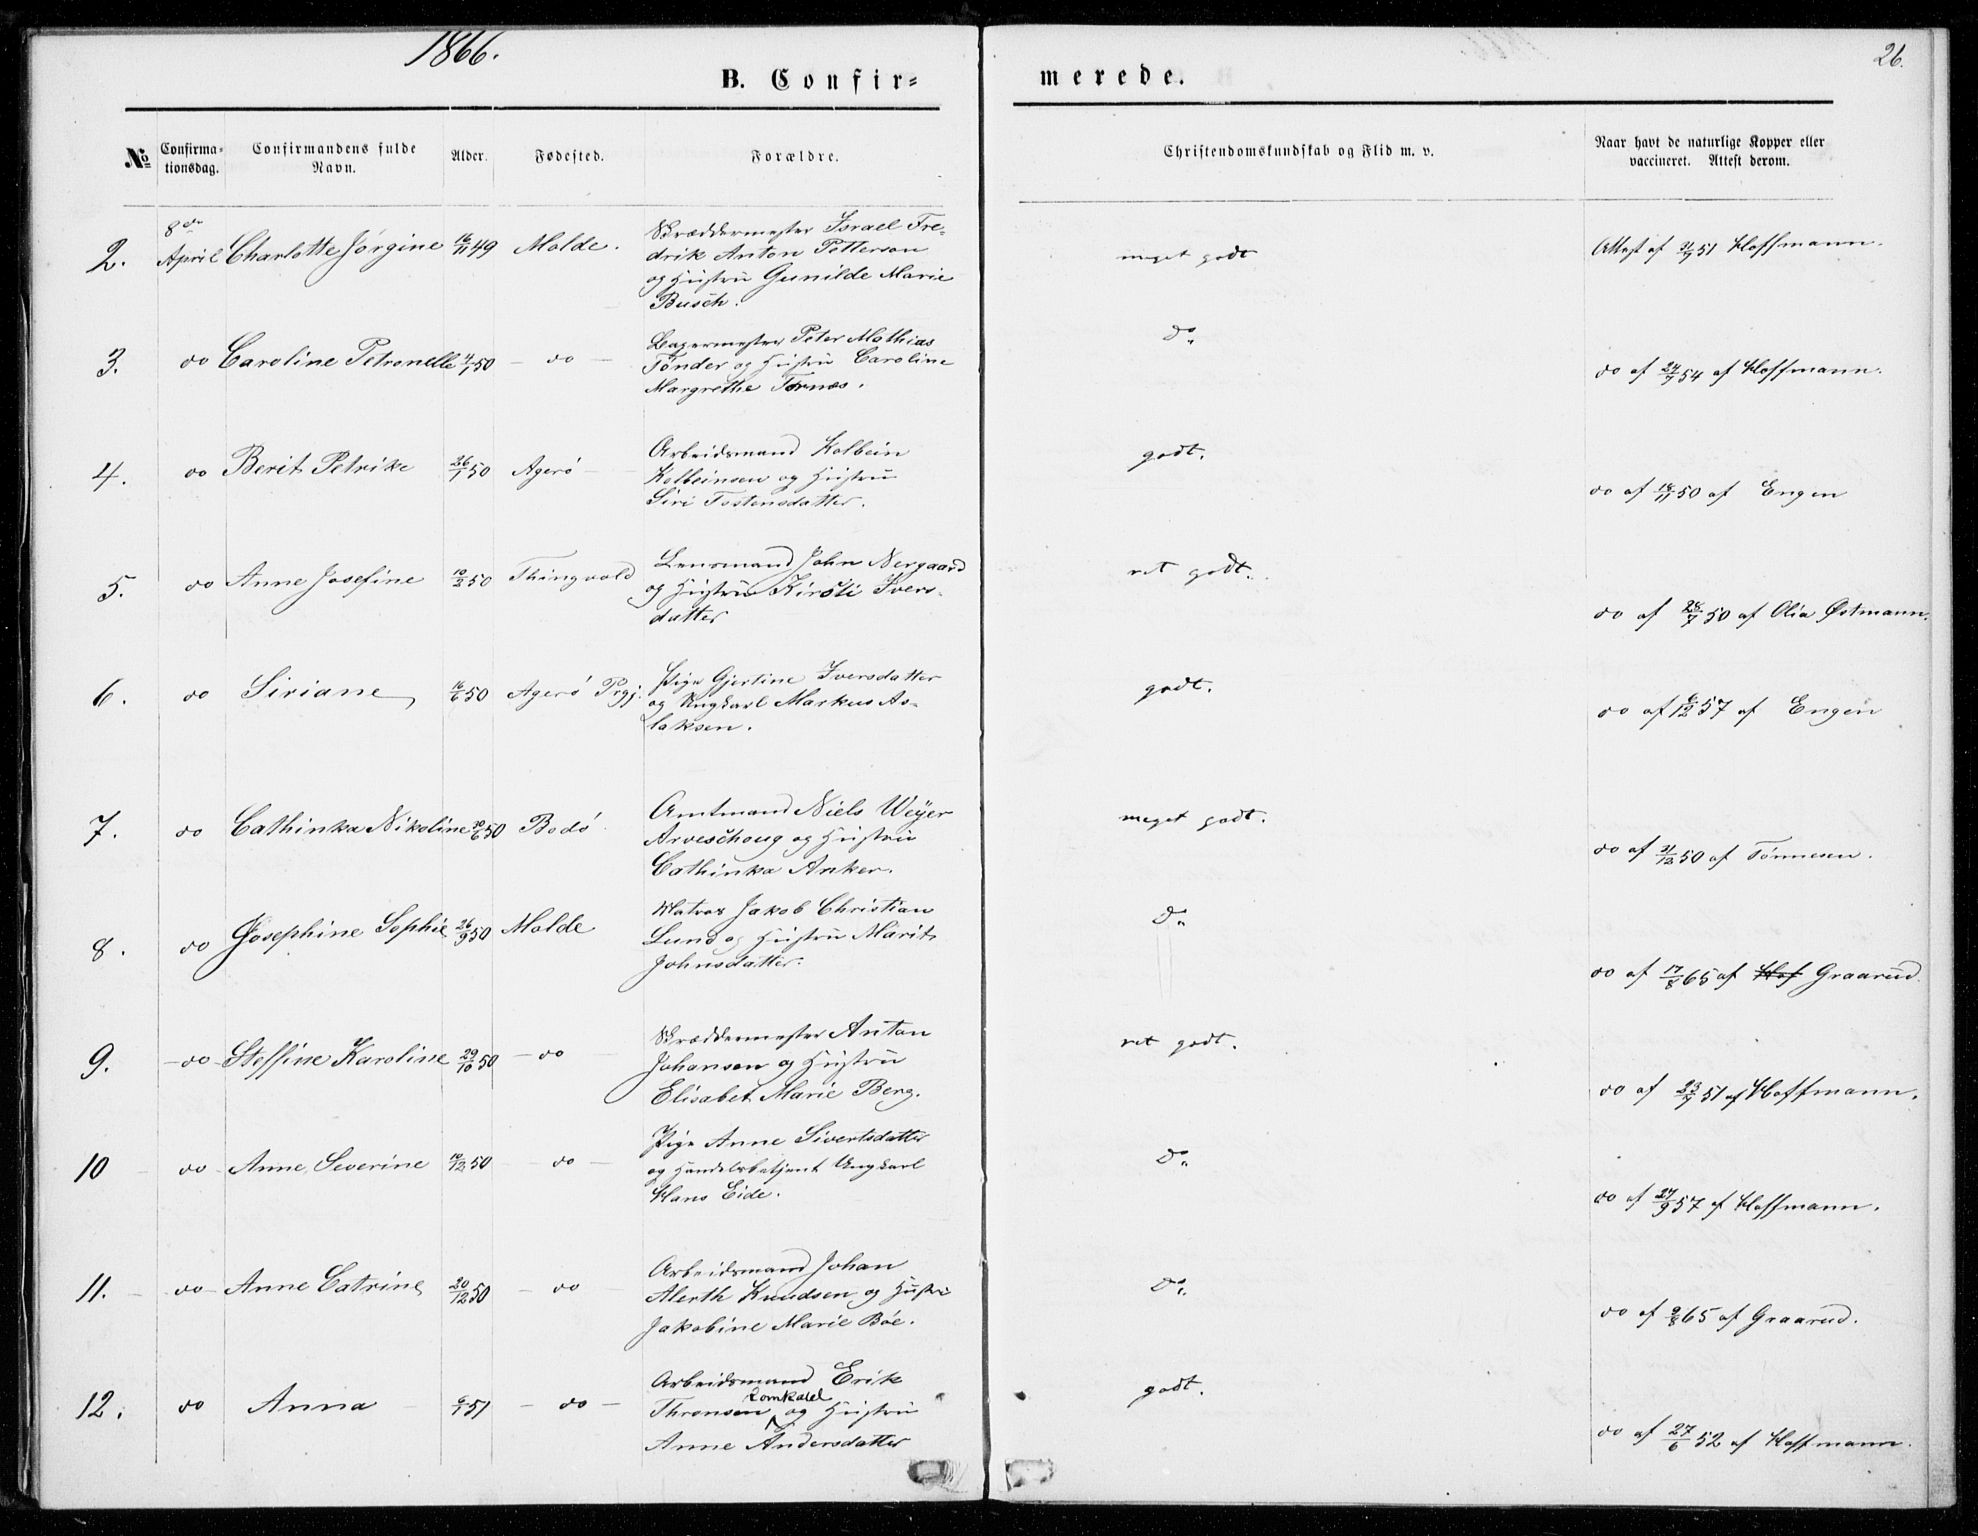 1866.
26.
B. Confir=
merede.
No
Confirma-
tionsdag.
Confirmandens fulde
Navn.
Alder.
Fødested.
Forældre.
Christendomskundskab og Flid m. v.
Naar havt de naturlige Kopper eller
vaccineret. Attest derom.
2.
8de
April
Charlotte Jørgine
16/11 49
Molde.
Skræddermester Israel Fre-
drik Anton Potterson
og Hustru Gunilde Marie
Busch.
meget godt
Attest af 51 Hoffmann.
3.
do
Caroline Petronelle
4/1 50
- do -
Bagermester Peter Mathias
Tønder og Hustru Caroline
Margrethe Tornæs.
Do.
do af 24/7 54 af Hoffmann.
4.
do
Berit Petrike
26/1 50
Agerø
Arbeidsmand Kolbein
Kolbeinsen og Hustru
Siri Tostensdatter.
godt.
do af 18/11 50 af Engen
5.
do
Anne Josefine
10/2 50
Thingvold
Lensmand John Nergaard
og Hustru Kirsti Ivers-
datter
ret godt.
do af 28/7 50 af Olia Østmann.
6.
do
Siriane
16/6 50
Agerø Prgj.
Pige Gjertine Iversdatter
og Ungkarl Markus As-
laksen.
godt.
do af 6/12 57 af Engen
7.
do
Cathinka Nikoline
30/6 50
Bodø
Amtmand Niels Weyer
Arveschoug og Hustru
Cathinka Anker.
meget godt.
do af 31/12 50 af Tønnesen.
8.
do
Josephine Sophie
26/9 50
Molde
Matros Jakob Christian
Lund og Hustru Marit
Johnsdatter.
Do.
do af 17/8 65 af Hof Graarud.
9.
- do
Steffine Karoline
29/10 50
- do
Skræddermester Anton
Johansen og Hustru
Elisabet Marie Berg.
ret godt.
do af 23/7 51 af Hoffmann.
10
do
Anne Severine
10/12 50
- do -
Pige Anne Sivertsdatter
og Handelsbetjent Ungkarl
Hans Eide.
Do.
do af 27/9 57 af Hoffmann.
11.
do
Anne Catrine
20/12 50
- do
Arbeidsmand Johan
Alerth Knudsen og Hustru
Jakobine Marie Bøe.
Do.
do af 9/8 65 af Graarud.
12.
do
Anna
6/1 51
- do -
Arbeidsmand Erik
Thronsen Romkald og Hustru
Anne Andersdatter
godt.
do af 27/6 52 af Hoffmann.